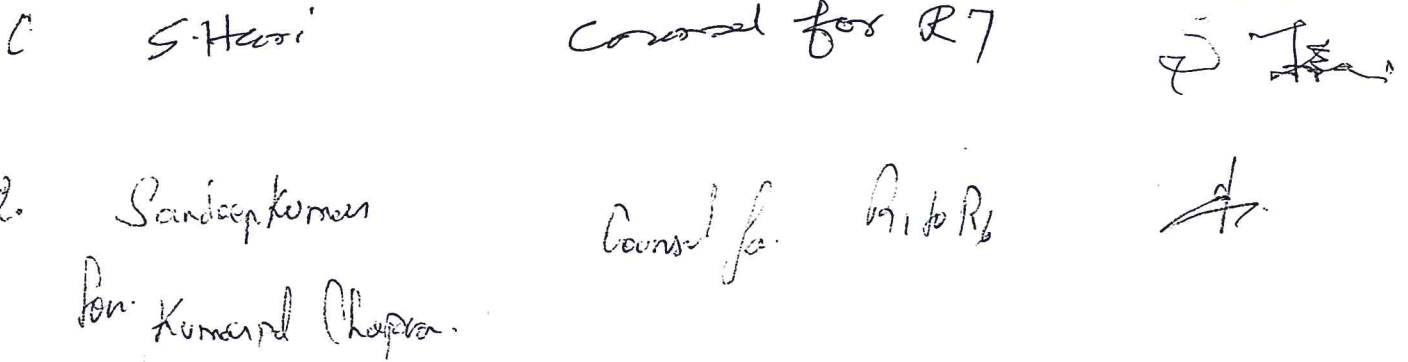 S. Hari Counsel for R7
2. Sandeep Kumar Counsel for R1 to R6
For. Kumarpal Chopra.